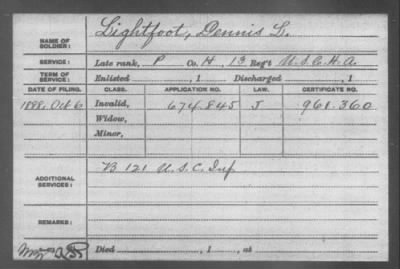 NAME OF SOLDIER: Lightfoot, Dennis L.
SERVICE: Late rank, P Co. H, 13 Reg't U.S.C.H.A.
TERM OF SERVICE: Enlisted , 1 Discharged , 1
DATE OF FILING. CLASS. APPLICATION NO. LAW. CERTIFICATE NO.
1888, Oct 6 Invalid, 674.845 J 961.360
Widow,
Minor,
ADDITIONAL SERVICES: B 121 U.S.C. Inf
REMARKS:
Died , 1 , at